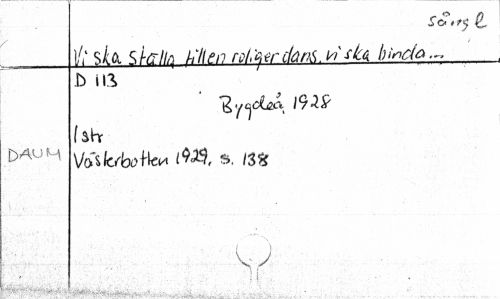 sångl
Vi ska ställa till en roliger dans, vi ska binda...
D 113
Bygdeå, 1928
1 str
DAUM
Västerbotten 1929, s. 138